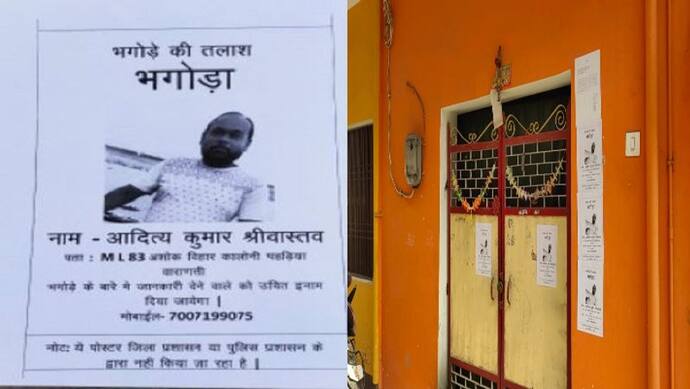 भगोड़े की तलाश
भगोड़ा
नाम - आदित्य कुमार श्रीवास्तव
पता : M L 83 अशोक विहार कालोनी पहड़िया
वाराणती
भगोड़े के बारे मे जानकारी देने वाले को उचित इनाम
दिया जायेगा |
मोबाईल- 7007199075
नोट: ये पोस्टर जिला प्रशासन या पुलिस प्रशासन के
द्वारा नहीं किया जा रहा है |